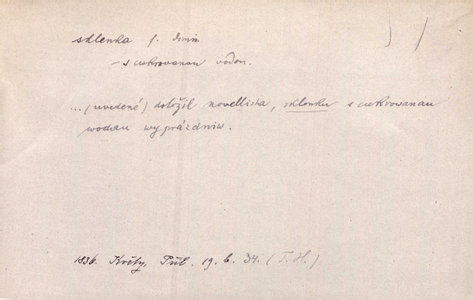 sklenka f. dimin.
– s cukrovanau vodou.
... (uvedené) doložil novellista, sklenku s cukrowanau
wodau wyprázdniw.
1836. Květy, Příl. 19. b. 34. (T. H.)